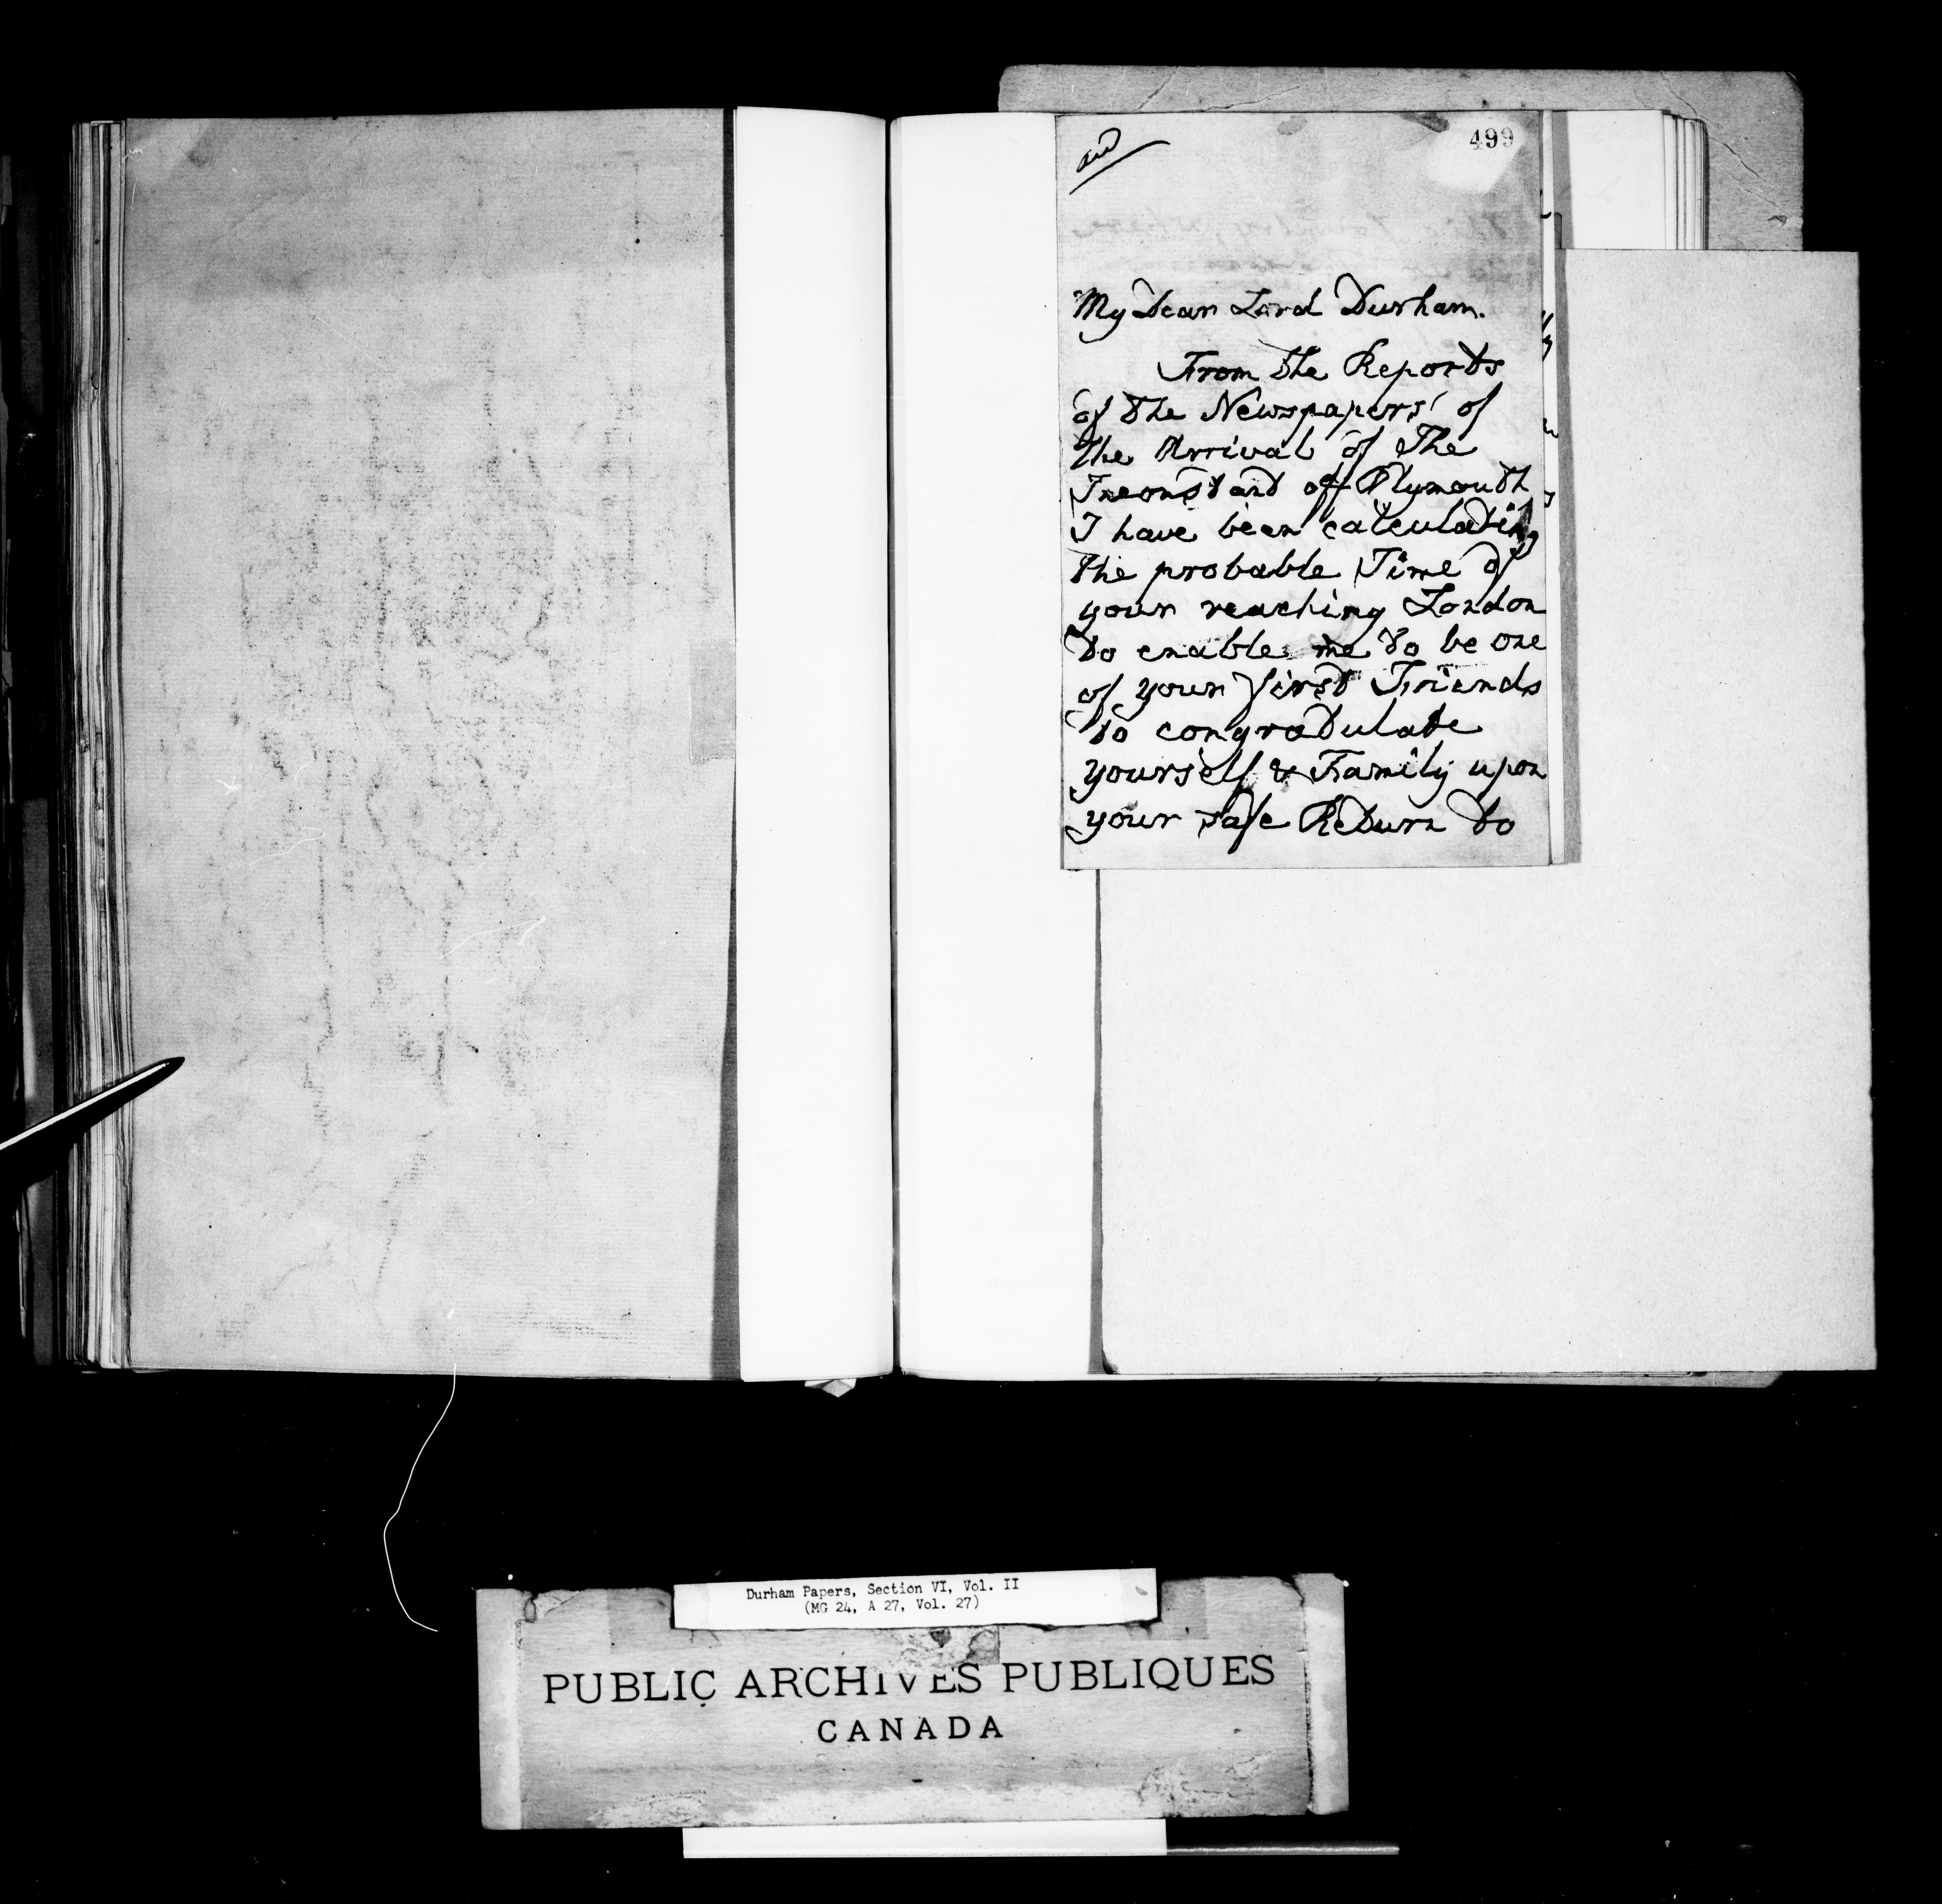 499
My Dear Lord Durham.
From the Reports
of the Newspapers of
the Arrival of The
Inconstant off Plymouth
I have been calculating
the probable Time of
your reaching London
to enable me to be one
of your first Friends
to congratulate
yourself & Family upon
your safe Return to
Durham Papers, Section VI, Vol. II
(MG 24, A 27, Vol. 27)
PUBLIC ARCHIVES PUBLIQUES
CANADA